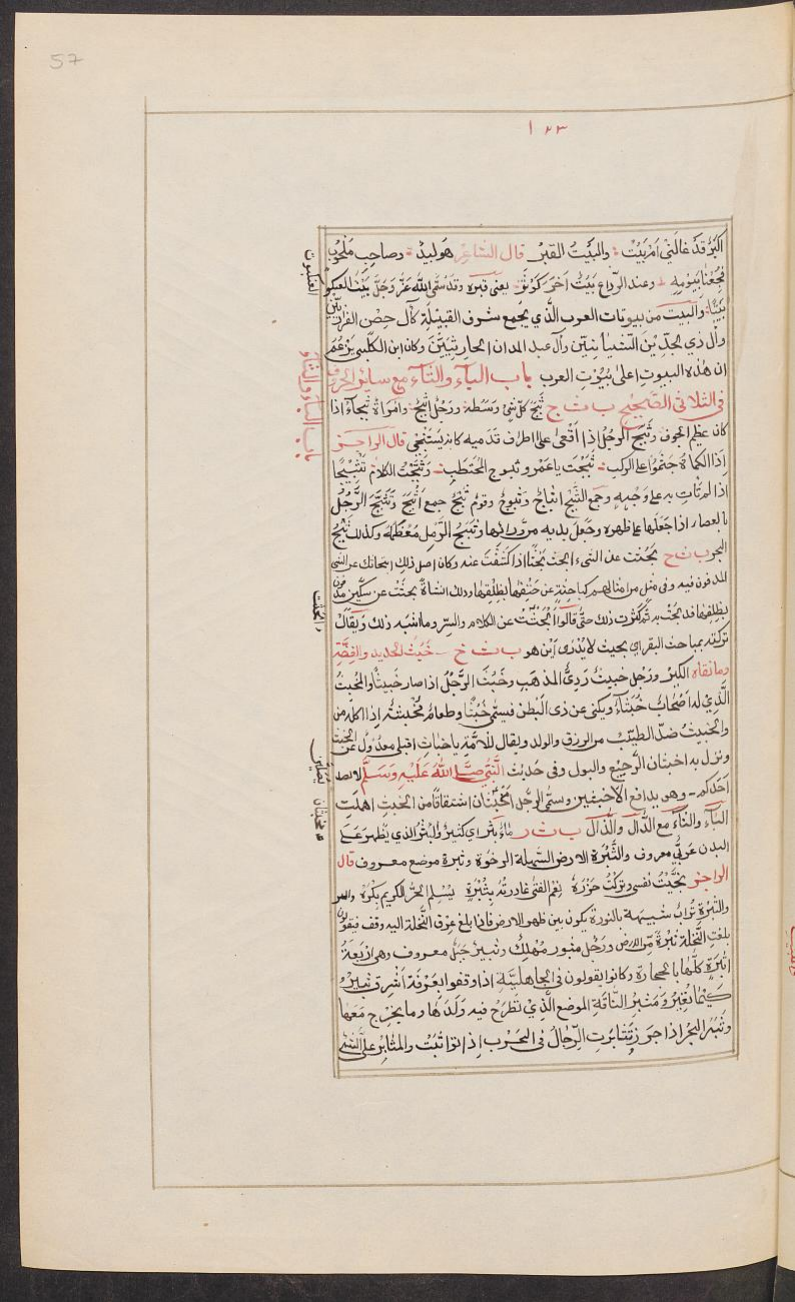 57
١٢٣
اكبر قد غالني ام بيت والبيت القبر قال الشاعر هو لبيد وصاحب ملحوب
فجعنا بيومه وعند الرداع بيت آخر كوثر يعني قبره وقد سمى الله عز وجل بيت العنكبوت
بيتا والبيت من بيوتات العرب الذي يجمع شرف القبيلة كآل حصن الفزاريين
وآل ذي الجدين الشيبانيين وآل عبد المدان الحارثيين وكان ابن الكلبي يزعم
ان هذه البيوت اعلى بيوت العرب باب الباء والثاء مع سائر الحروف
في الثلاثي الصحيح ب ث ج ثبج كل شئ وسطه ورجل اثبج وامراة ثبجاء اذا
كان عظيم الجوف وثبج الرجل اذا اقعى على اطراف قدميه كانه يستنجي قال الراجز
اذا الكماة جثموا على الركب ثبجت يا عمرو ثبوج المحتطب وثبجت الكلام تثبيجا
اذا لم تات به على وجهه وجمع الثبج اثباج وثبوج وقوم ثبج جمع اثبج وتثبج الرجل
بالعصا اذا جعلها على ظهره وجعل يديه من ورائها وثبج الرمل معظمه وكذلك ثبج
البحر ب ث ح بحثت عن الشيء ابحث بحثا اذا كشفت عنه وكان اصل ذلك ابتحاثك عن الشئ
المدفون فيه وفي مثل من امثالهم كباحثة عن حتفها بظلفها وذلك ان شاة بحثت عن سكين مدفون
بظلفها فذبحت به ثم كثر ذلك حتى قالوا بحثت عن الكلام والسر وما اشبه ذلك ويقال
تركته بمباحث البقر اي بحيث لا يدرى اين هو ب ث خ خبث الحديد والفضة
وما نقاه الكير ورجل خبيث ردي المذهب وخبث الرجل اذا صار خبيثا والمخبث
الذي له اصحاب خبثاء ويكنى عن ذي البطن فيسمى خبثا وطعام مخبثة اذا اكله من
والخبيث ضد الطيب من الرزق والولد ويقال للامة يا خباث اقبلي معدول عن الخبث
ونزل به اخبثان الرجيع والبول وفي حديث النبي صلى الله عليه وسلم لا
احدكم وهو يدافع الاخبثين وسمي الرجل مخبثان اشتقاقا من الخبث اهملت
الباء والثاء مع الدال والذال ب ث ر ماء بثر اي كثير والبثر الذي يظهر على
البدن عربي معروف والثبرة الارض السهلة الرخوة وثبرة موضع معروف قال
الراجز نجيت نفسي وتركت حزره نعم الفتى غادرته بثبره لن يسلم الحر الكريم بكره
والثبرة تراب شبيهة بالنورة يكون بين ظهر الارض فاذا بلغ عرق النخلة اليه وقف فيقولون
بلغت النخلة ثبرة من الارض ورجل مثبور مهلك وثبير جبل معروف وهي اربعة
اثبرة كلها بالحجاز وكانوا يقولون في الجاهلية اذا وقفوا بعرفة اشرق ثبير
كيما نغير ومثبر الناقة الموضع الذي تطرح فيه ولدها وما يخرج معها
وثبر البحر اذا جزر وتثابرت الرجال في الحرب اذا تواثبت والمثابر على الشئ
العنكبوت
باب الباء والثاء